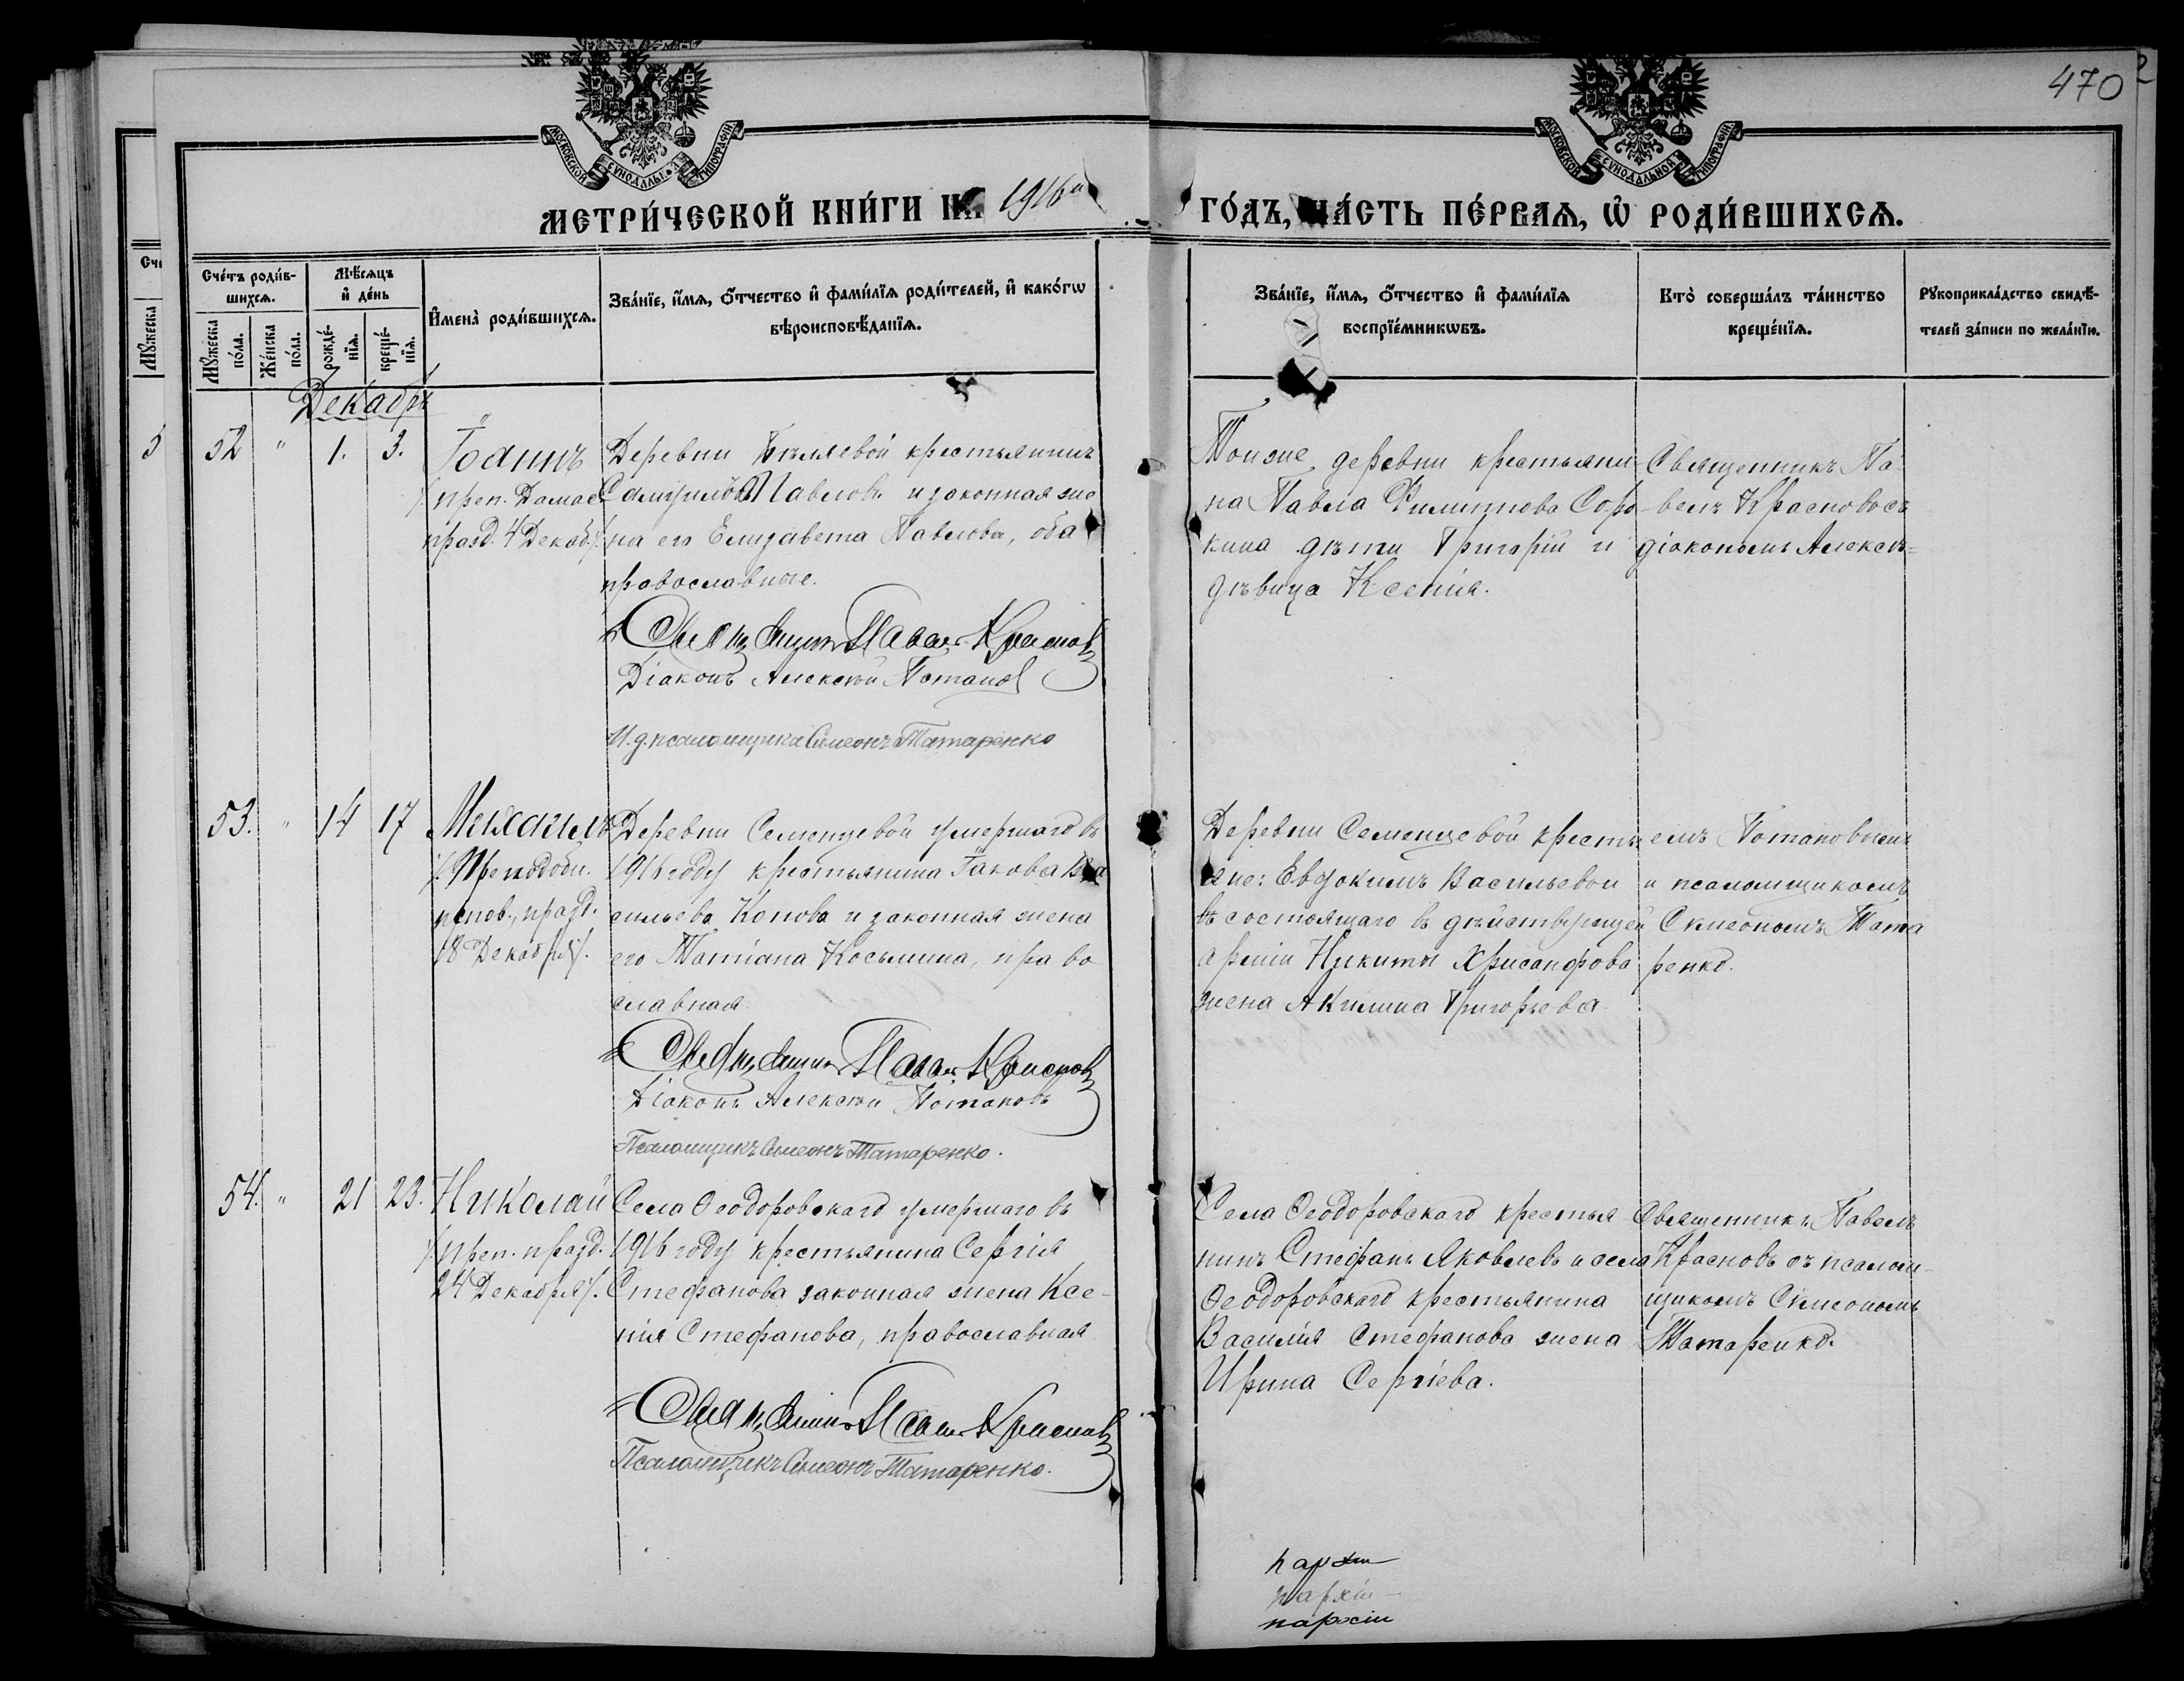 470
МОСКОВСКОЙ СѴНОДАЛЬНОЙ ТИПОГРАФІИ
МОСКОВСКОЙ СѴНОДАЛЬНОЙ ТИПОГРАФІИ
МЕТРИ́ЧЕСКОЙ КНИ́ГИ НА 1916й ГО́ДЪ, ЧА́СТЬ ПЕ́РВАЯ, Ѡ РОДИ́ВШИХСЯ.
Сче́тъ роди́в-
шихся.
Мѣ́сяцъ
и де́нь
Мꙋжеска по́ла.
Же́нска по́ла.
рожде́-
нїя.
креще́-
нїя.
Имена̀ роди́вшихся.
Зва́нїе, и́мя, о́тчество и фами́лїя роди́телей, и како́гѡ
вѣроисповѣ́данїя.
Зва́нїе, и́мя, о́тчество и фами́лїя
воспрїе́мникѡвъ.
Кто̀ соверша́лъ та́инство
креще́нїя.
Рꙋкоприкла́дство свидѣ́-
телей за́писи по жела́нїю.
Декабрь
52 " 1. 3.
Іоаннъ
/преп. Дамас
празд. 4 Декаб./.
Деревни Бѣляевой крестьянинъ
Самуиловъ Павловъ и законная же
на его Елизавета Павлова, оба
православные.
Священникъ Павелъ Красновъ
Діаконъ Алексѣй Потапов
И.д. псаломщика Симеонъ Татаренко
Тойже деревни крестьяни-
на Павла Филиппова Соро-
кина дѣти Григорій и
дѣвица Ксенія.
Священникъ Па
велъ Красновъ съ
діакономъ Алексѣ=
53. " 14 17
Михаилъ
/Преподобн.
испов., празд.
18 Декабря/.
Деревни Семенцевой умершаго въ
1916 году крестьянина Іакова Ва
сильева Конова и законная жена
его Татіана Косьмина, право
славная.
Священникъ Павелъ Красновъ
Діаконъ Алексѣй Потаповъ
Псаломщикъ Симеонъ Татаренко.
Деревни Семенцевой кресть
яне: Евдокимъ Васильевъ и
состоящаго въ дѣйствующей
арміи Никиты Хрисанфова
жена Акилина Григорьева.
емъ Потаповымъ
и псаломщикомъ
Симеономъ Тата
ренко.
54. " 21 23.
Николай
/преп. празд.
24 Декабря/.
Села Ѳеодоровскаго умершаго въ
1916 году крестьянина Сергія
Стефанова законная жена Ксе-
нія Стефанова, православная
Священникъ Павелъ Красновъ
Псаломщикъ Симеонъ Татаренко.
Села Ѳеодоровскаго крестья-
нинъ Стефанъ Яковлевъ и села
Ѳеодоровскаго крестьянина
Василія Стефанова жена
Ирина Сергіева.
Священникъ Павелъ
Красновъ съ псалом-
щикомъ Симеономъ
Татаренко.